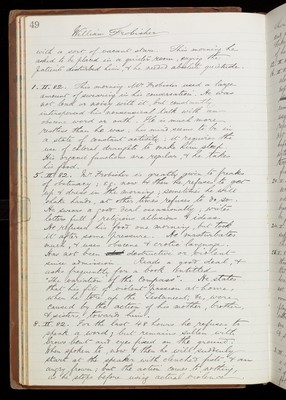 49
William Frobisher
with a sort of vacant stare. This morning he
asked to be placed in a quieter room, saying the
patient disturbed him, & he needed absolute quietude.
1. II. 02. This morning Mr Frobisher used a large
amount of swearing in his conversation. He does
not loud or noisy with it, but constantly
interspersed his occasional talk with an
obscene word or oath. He is much more
restless than he was, his mind seems to be in
a state of constant activity, & requires the
use of calmal draughts to make him sleep.
His organic functions are regular, & he takes
his food.
5. II. 02. Mr Frobisher is greatly given to freaks
of obstinacy; e.g. now & then he refuses to get
up & dress in the morning; sometimes he will
shake hands, at other times refuses to do so.
He swears a good deal occasionally, writes
letters full of religious allusions & ideas.
He refused his food one morning, but took
it after some pressure. He masturbates
much, & uses obscene & erotic language.
Has not been destructive or violent
since admission. Reads a good deal, &
asks frequently for a book entitled
"The variation of the Compass". He states
that his fits of violent passion at home,
when he tore up the Testament, &c, were
caused by the action of his mother, brother,
& sister, towards him.
8. II. 02. For the last 48 hours he refuses to
speak a word; but remains sullen with
brows bent and eyes fixed on the ground.
When spoken to, now & then he will suddenly
start at the speaker with clenched fists, & an
angry frown; but the action comes to nothing,
as he stops before using actual violence.